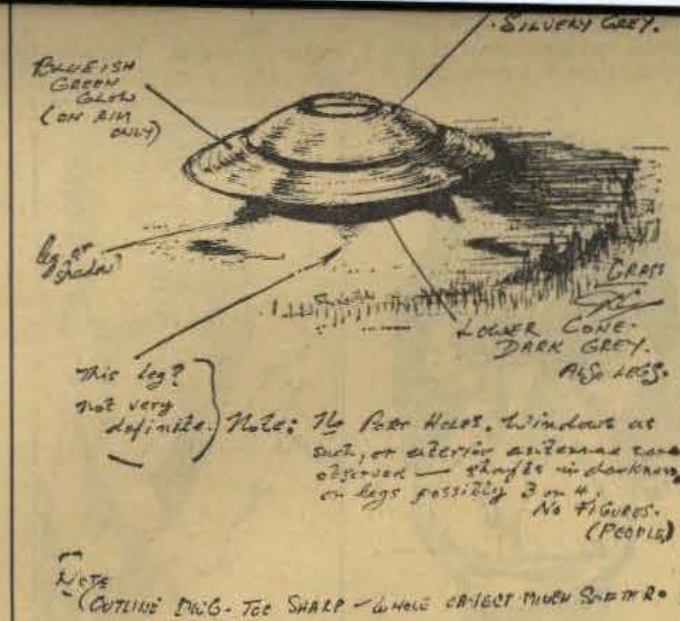 SILVERY GREY.
BLUEISH
GREEN
GLOW
(ON RIM
ONLY)
leg or
shadow?
GRASS
LOWER CONE-
DARK GREY.
ALSO LEGS.
This leg?
not very
definite.
Note: No Port Holes, Windows as
such, or exterior antennae were
observed — in darkness,
on legs possibly 3 or 4.
NO FIGURES.
(PEOPLE)
NOTE
(OUTLINE DWG - TOO SHARP - WHOLE OBJECT MUCH SOFTER